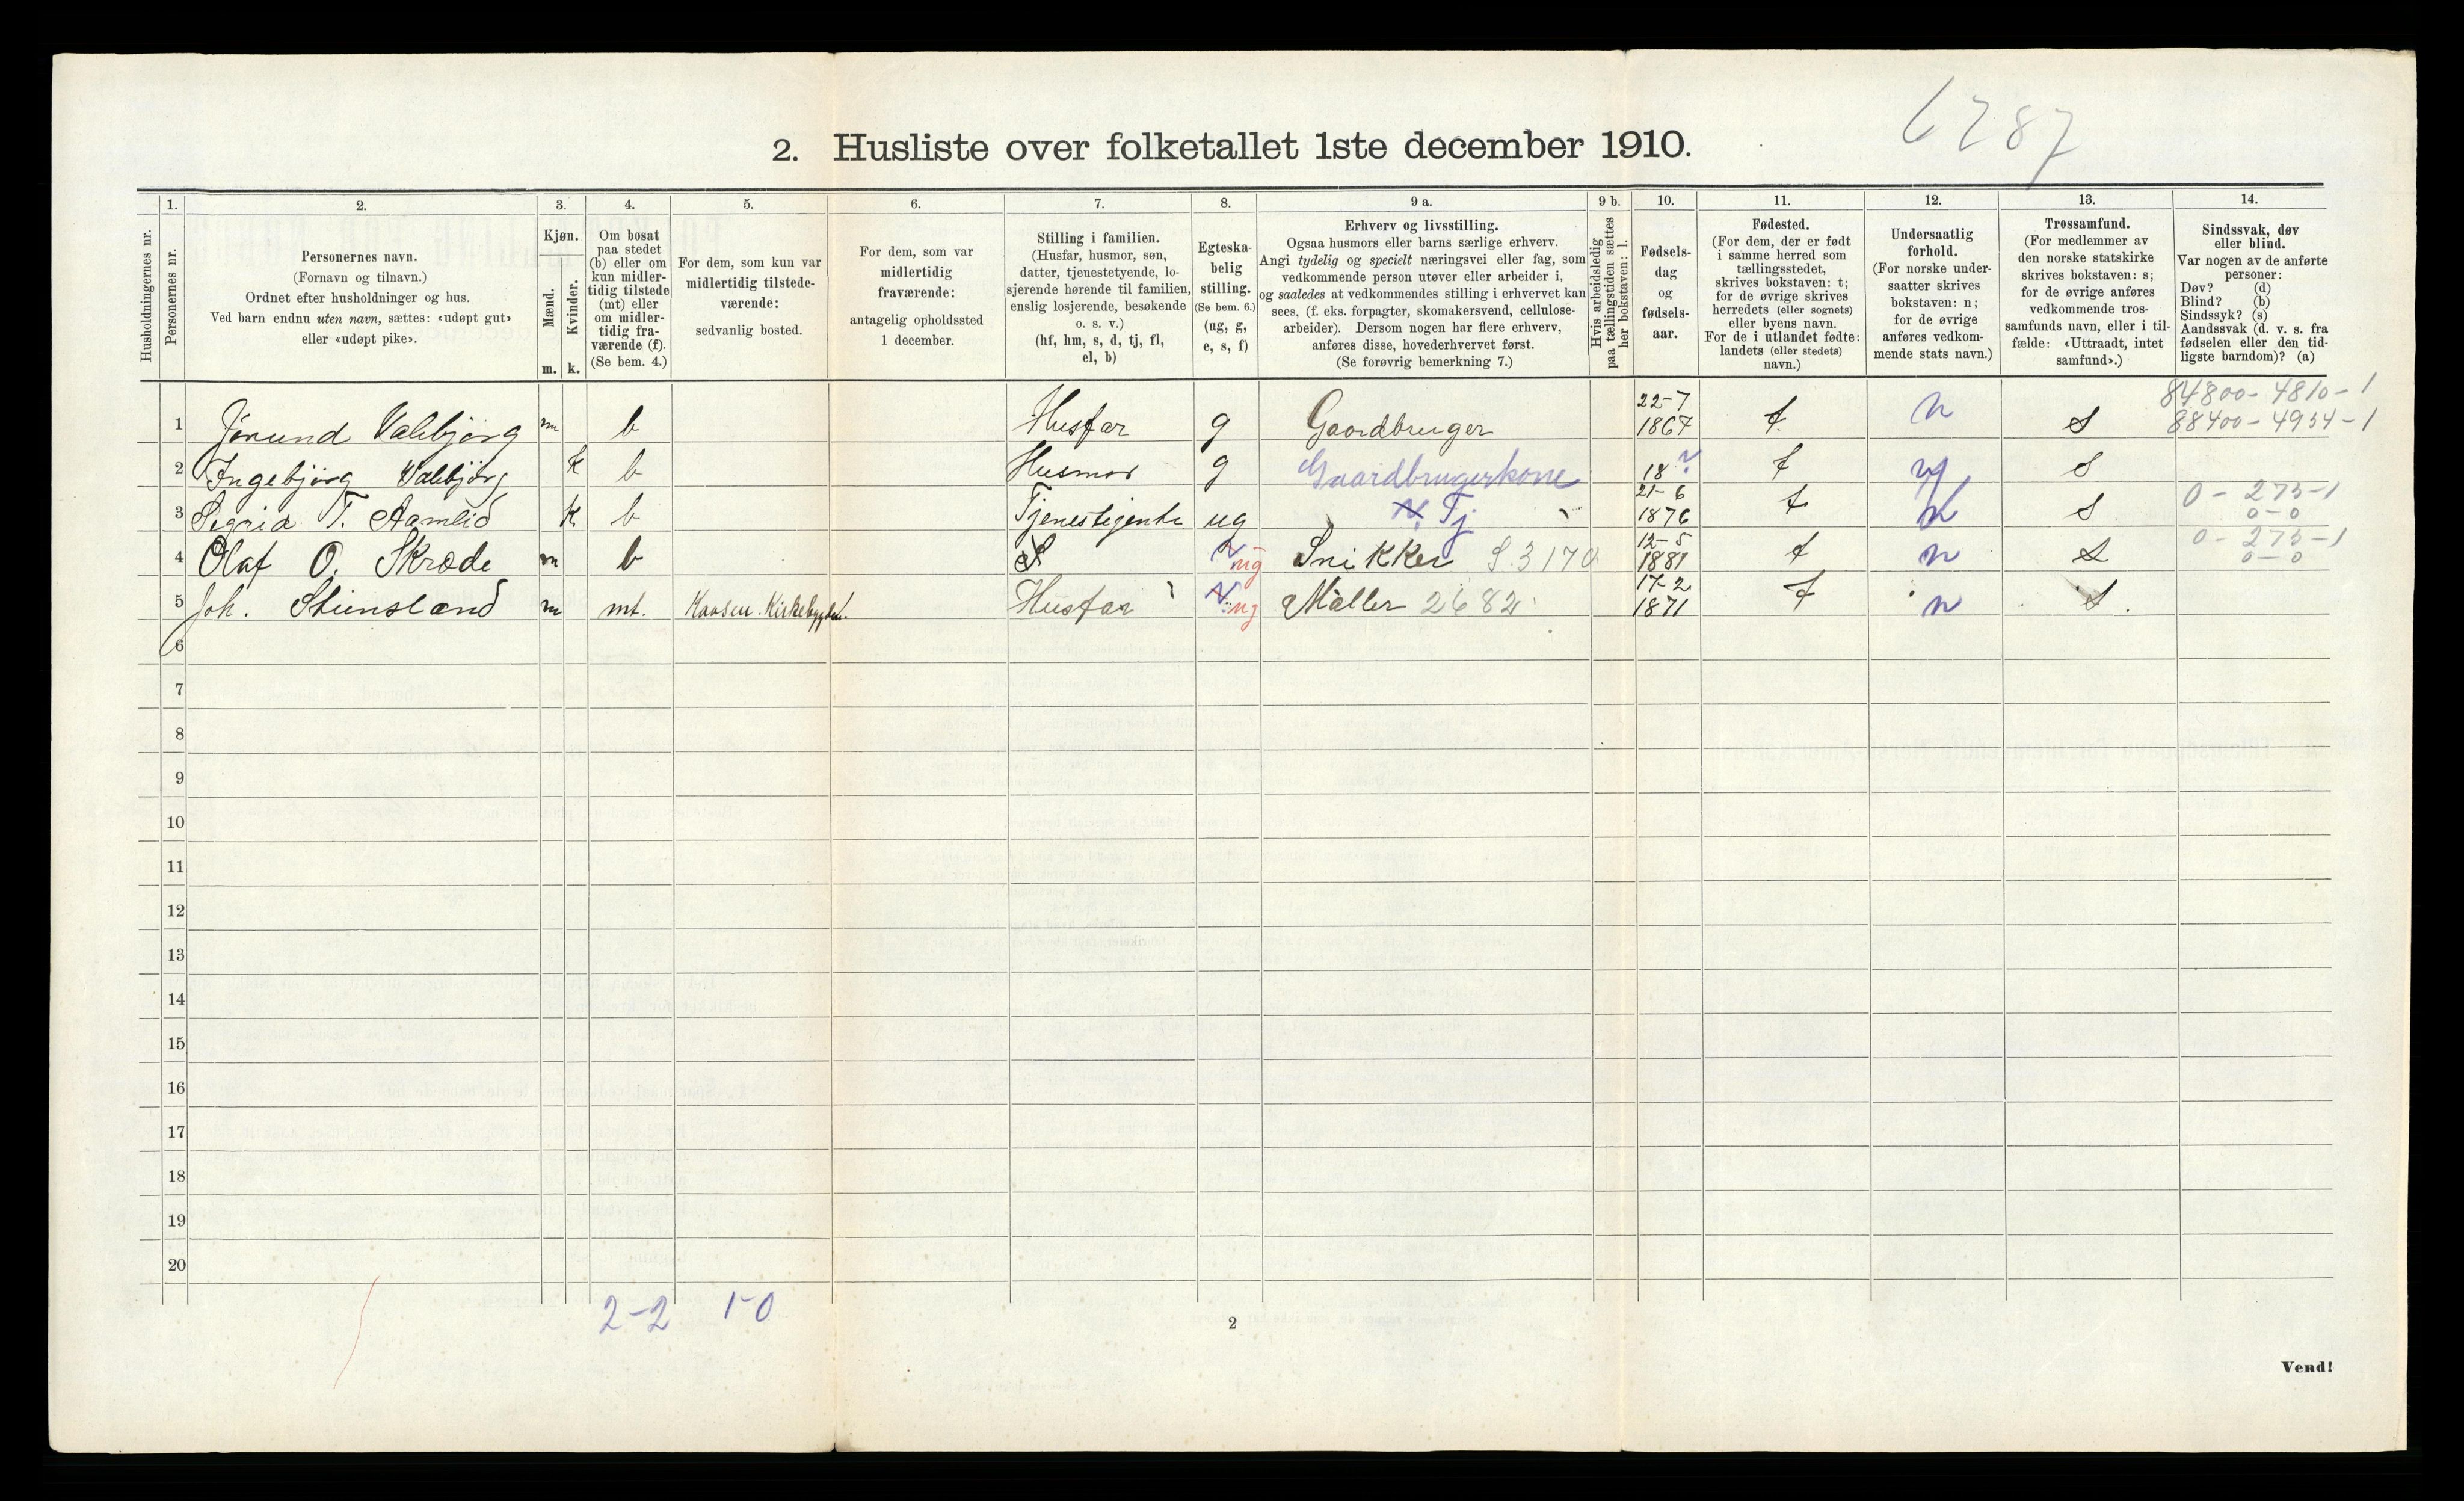 6287
2. Husliste over folketallet 1ste december 1910.
Husholdningernes nr.
1.
Personernes nr.
2.
Personernes navn.
(Fornavn og tilnavn.)
Ordnet efter husholdninger og hus.
Ved barn endnu uten navn, sættes: «udøpt gut»
eller «udøpt pike».
3.
Kjøn.
Mænd.
Kvinder.
m. k.
4.
Om bosat
paa stedet
(b) eller om
kun midler-
tidig tilstede
(mt) eller
om midler-
tidig fra-
værende (f).
(Se bem. 4.)
5.
For dem, som kun var
midlertidig tilstede-
værende:
sedvanlig bosted.
6.
For dem, som var
midlertidig
fraværende:
antagelig opholdssted
1 december.
7.
Stilling i familien.
(Husfar, husmor, søn,
datter, tjenestetyende, lo-
sjerende hørende til familien,
enslig losjerende, besøkende
o. s. v.)
(hf, hm, s, d, tj, fl,
el, b)
8.
Egteska-
belig
stilling.
(Se bem. 6.)
(ug, g,
e, s, f)
9 a.
Erhverv og livsstilling.
Ogsaa husmors eller barns særlige erhverv.
Angi tydelig og specielt næringsvei eller fag, som
vedkommende person utøver eller arbeider i,
og saaledes at vedkommendes stilling i erhvervet kan
sees, (f. eks. forpagter, skomakersvend, cellulose-
arbeider). Dersom nogen har flere erhverv,
anføres disse, hovederhvervet først.
(Se forøvrig bemerkning 7.)
9 b.
Hvis arbeidsledig
paa tællingstiden sættes
her bokstaven: l.
10.
Fødsels-
dag
og
fødsels-
aar.
11.
Fødested.
(For dem, der er født
i samme herred som
tællingsstedet,
skrives bokstaven: t;
for de øvrige skrives
herredets (eller sognets)
eller byens navn.
For de i utlandet fødte:
landets (eller stedets)
navn.)
12.
Undersaatlig
forhold.
(For norske under-
saatter skrives
bokstaven: n;
for de øvrige
anføres vedkom-
mende stats navn.)
13.
Trossamfund.
(For medlemmer av
den norske statskirke
skrives bokstaven: s;
for de øvrige anføres
vedkommende tros-
samfunds navn, eller i til-
fælde: «Uttraadt, intet
samfund».)
14.
Sindssvak, døv
eller blind.
Var nogen av de anførte
personer:
Døv? (d)
Blind? (b)
Sindssyk? (s)
Aandssvak (d. v. s. fra
fødselen eller den tid-
ligste barndom)? (a)
84800-4810-1
1 Jørund Valebjørg m b Husfar g Gaardbruger 22-7 1867 t n S 88400-4954-1
2 Ingebjørg Valebjørg K b Husmor g Gaardbrugerkone 18 t n S
3 Sigrid T. Aamlid K b Tjenestigente ug Tj 21-6 1876 t n S 0-275-1 0-0
4 Olaf O. Skrode m b S ug Snikker S.3170 12-5 1881 t n S 0-275-1 0-0
5 Joh. Stiensland m mt. Kaasen. Kirkebygden. Husfar ug Møller 2682 17-2 1871 t n S.
6
7
8
9
10
11
12
13
14
15
16
17
18
19
20
2-2 1-0
2
Vend!